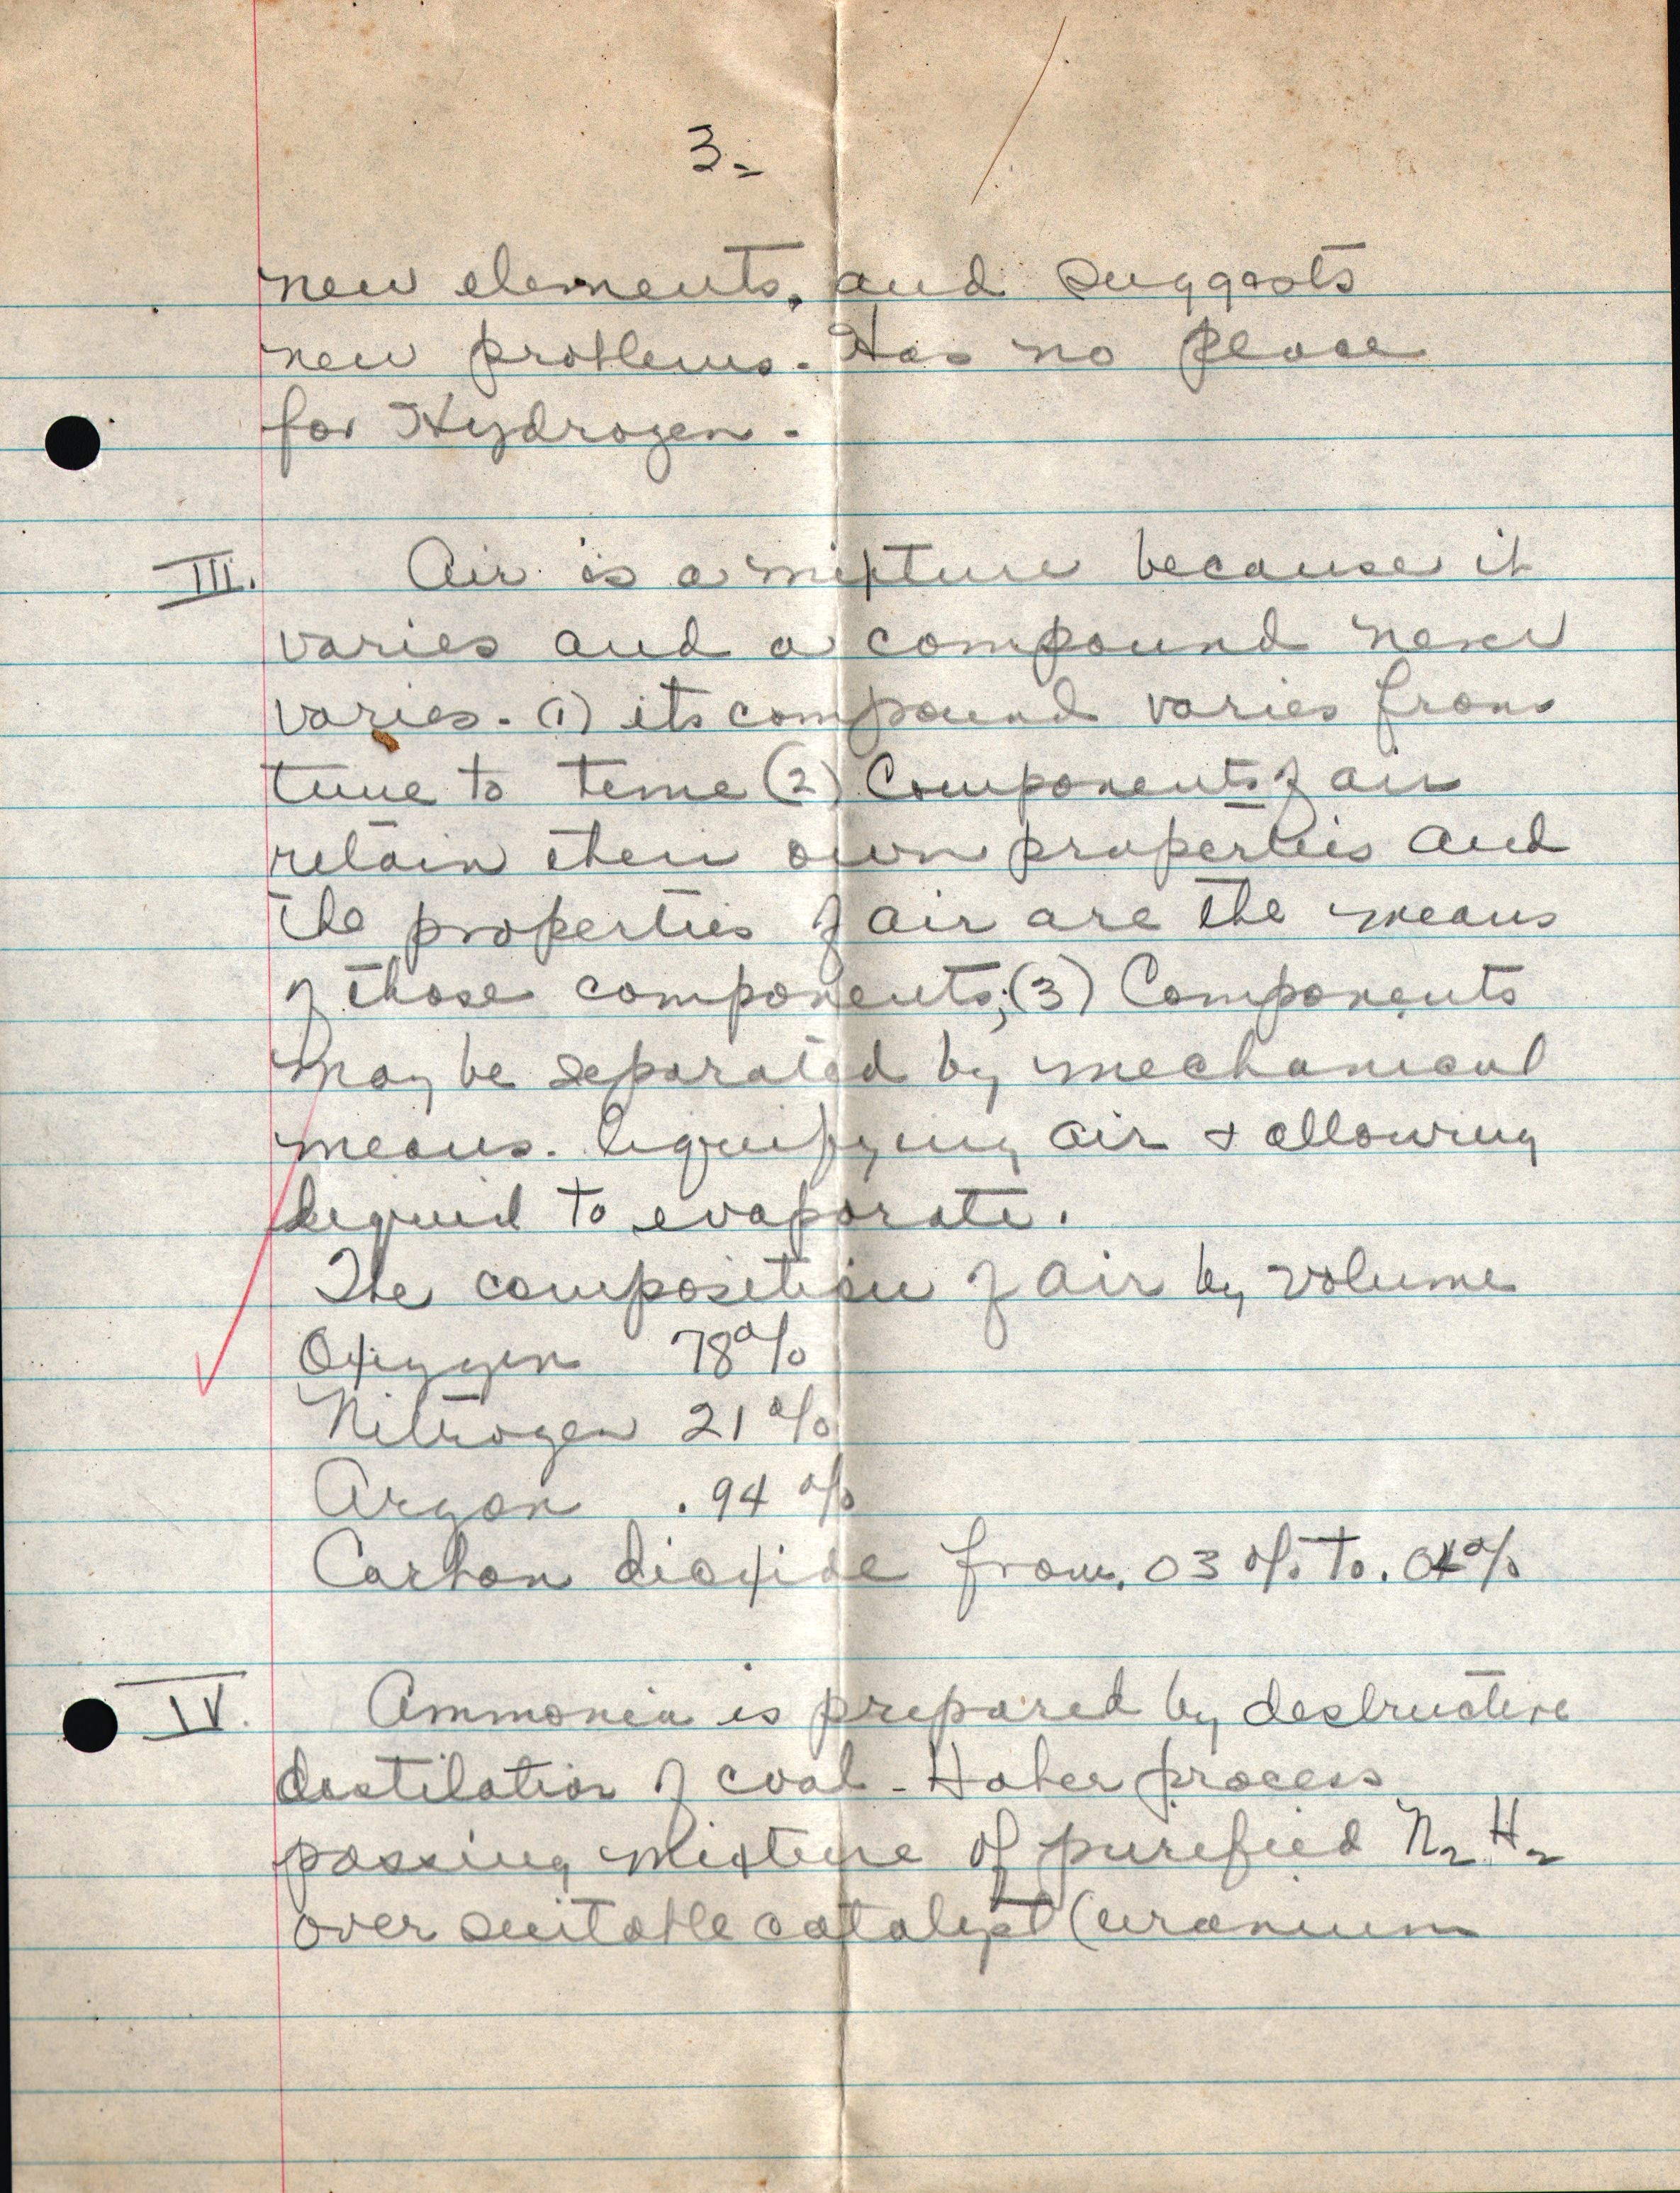 3.
new elements, and suggests
new problems. Has no place
for Hydrogen.
III. Air is a mixture because it
varies and a compound never
varies. (1) its compound varies from
time to time (2) Components of air
retain their own properties and
the properties of air are the means
of those components; (3) Components
may be separated by mechanical
means. liquifying air + allowing
liquid to evaporate.
The composition of air by volume
Oxygyen 78%
Nitrogen 21%
Argon .94%
Carbon dioxide from .03% to .04%
IV. Ammonia is prepared by destructive
destilation of coal - Haber process
passing mixture of purefied N2 H2
over suitable catalyst (uranium